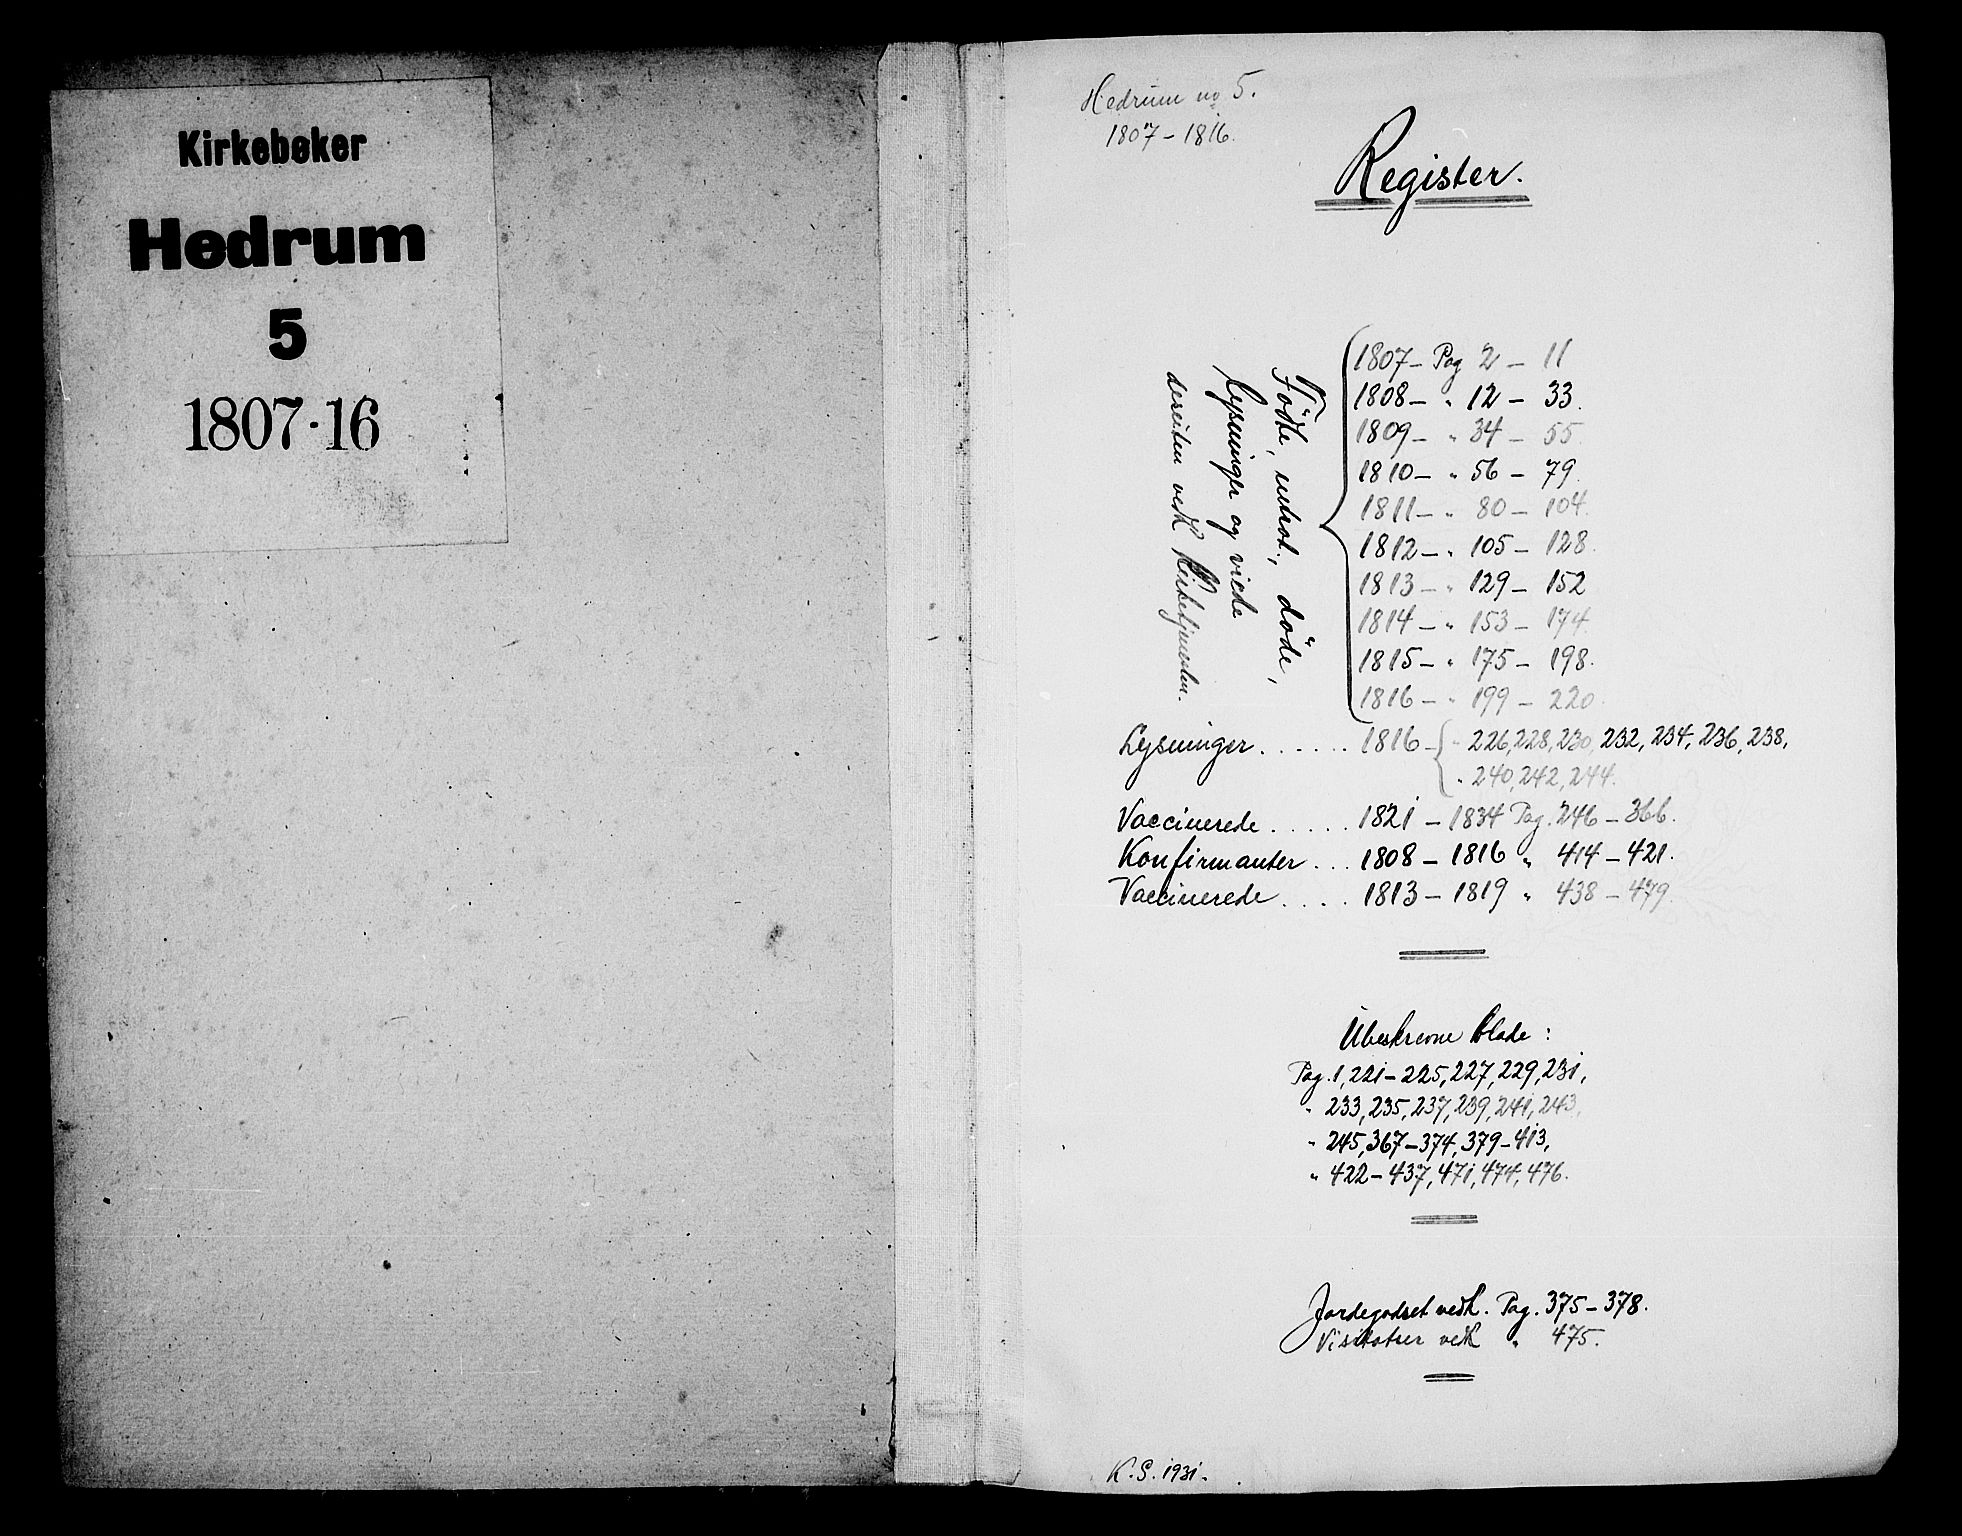 Kirkebøker
Hedrum
5
1807-16
Hedrum no 5.
1807 – 1816.
Register.
Födte, introd., döde,
Lysninger og viede
desuten vedk Kirketjenesten.
1807 – Pag 2 – 11
1808 – " 12 – 33.
1809 – " 34 – 55
1810 – " 56 – 79.
1811 – " 80 – 104.
1812 – " 105 – 128.
1813 – " 129 – 152
1814 – " 153 – 174.
1815 – " 175 – 198.
1816 – " 199 – 220.
Lysninger ...... 1816 – " 226, 228, 230, 232, 234, 236, 238,
" 240, 242, 244.
Vaccinerede ..... 1821 – 1834 Pag. 246 – 366.
Konfirmanter ... 1808 – 1816 " 414 – 421.
Vaccinerede .... 1813 – 1819 " 438 – 479.
Ubeskrevne blade :
Pag. 1, 221 – 225, 227, 229, 231,
" 233, 235, 237, 239, 241, 243,
" 245, 367 – 374, 379 – 413,
" 422 – 437, 471, 474, 476.
Jordegodset vedk. Pag. 375 – 378.
Visitatser vedk " 475.
K. S. 1931.